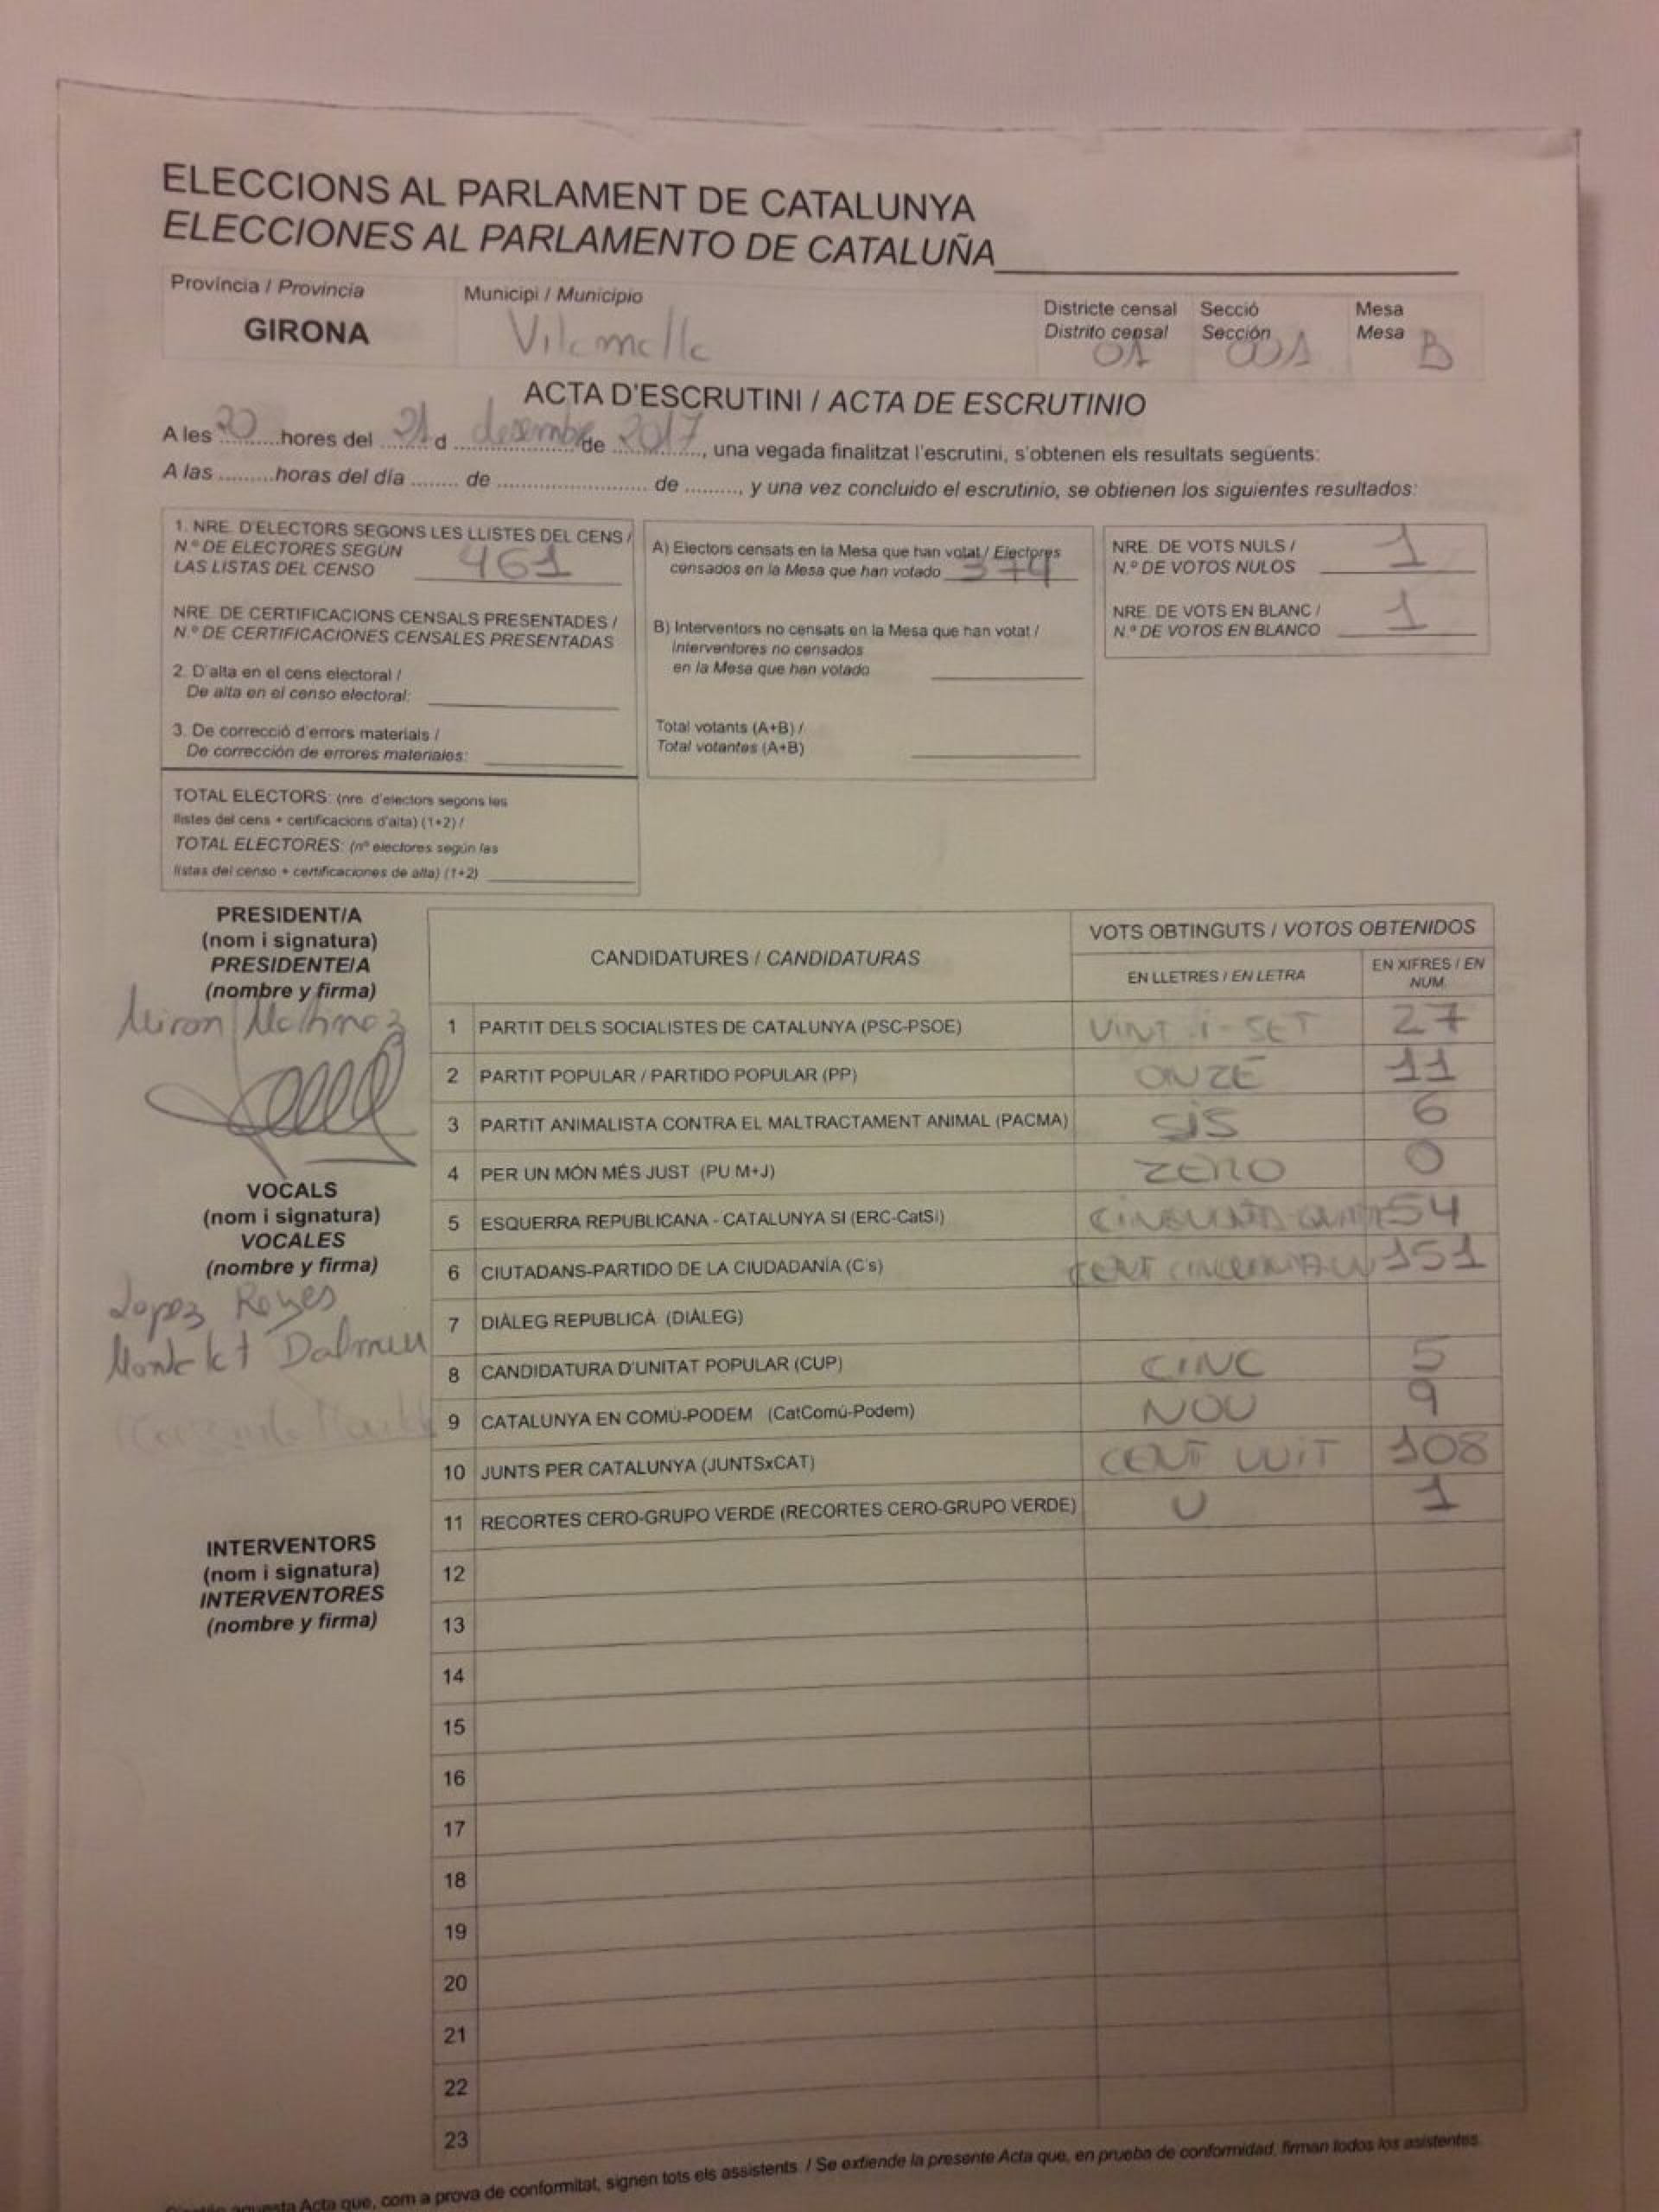 ELECCIONS AL PARLAMENT DE CATALUNYA
ELECCIONES AL PARLAMENTO DE CATALUÑA
Província / Provincia
GIRONA
Municipi / Municipio
Vilamalla
Districte censal
Distrito censal
01
Secció
Sección
001
Mesa
Mesa
B
ACTA D'ESCRUTINI / ACTA DE ESCRUTINIO
A les 20 hores del 21 d desembre de 2017, una vegada finalitzat l'escrutini, s'obtenen els resultats següents:
A las .........horas del día ........ de ......................... de ........., y una vez concluido el escrutinio, se obtienen los siguientes resultados:
1. NRE. D'ELECTORS SEGONS LES LLISTES DEL CENS /
N.º DE ELECTORES SEGÚN
LAS LISTAS DEL CENSO 461
NRE. DE CERTIFICACIONS CENSALS PRESENTADES /
N.º DE CERTIFICACIONES CENSALES PRESENTADAS
2. D'alta en el cens electoral /
De alta en el censo electoral:
3. De correcció d'errors materials /
De corrección de errores materiales:
TOTAL ELECTORS: (nre. d'electors segons les
llistes del cens + certificacions d'alta) (1+2) /
TOTAL ELECTORES: (nº electores según las
listas del censo + certificaciones de alta) (1+2)
A) Electors censats en la Mesa que han votat / Electores
censados en la Mesa que han votado 374
B) Interventors no censats en la Mesa que han votat /
Interventores no censados
en la Mesa que han votado
Total votants (A+B) /
Total votantes (A+B)
NRE. DE VOTS NULS /
N.º DE VOTOS NULOS 1
NRE. DE VOTS EN BLANC /
N.º DE VOTOS EN BLANCO 1
PRESIDENT/A
(nom i signatura)
PRESIDENTE/A
(nombre y firma)
VOCALS
(nom i signatura)
VOCALES
(nombre y firma)
Lopez Reyes
Dalmau
INTERVENTORS
(nom i signatura)
INTERVENTORES
(nombre y firma)
CANDIDATURES / CANDIDATURAS
VOTS OBTINGUTS / VOTOS OBTENIDOS
EN LLETRES / EN LETRA
EN XIFRES / EN
NUM.
1 PARTIT DELS SOCIALISTES DE CATALUNYA (PSC-PSOE) VINT-i-SET 27
2 PARTIT POPULAR / PARTIDO POPULAR (PP) ONZE 11
3 PARTIT ANIMALISTA CONTRA EL MALTRACTAMENT ANIMAL (PACMA) SIS 6
4 PER UN MÓN MÉS JUST (PU M+J) ZERO 0
5 ESQUERRA REPUBLICANA - CATALUNYA SI (ERC-CatSí) 54
6 CIUTADANS-PARTIDO DE LA CIUDADANÍA (C's) CENT 151
7 DIÀLEG REPUBLICÀ (DIÀLEG)
8 CANDIDATURA D'UNITAT POPULAR (CUP) CINC 5
9 CATALUNYA EN COMÚ-PODEM (CatComú-Podem) NOU 9
10 JUNTS PER CATALUNYA (JUNTSxCAT) CENT VUIT 108
11 RECORTES CERO-GRUPO VERDE (RECORTES CERO-GRUPO VERDE) U 1
12
13
14
15
16
17
18
19
20
21
22
23
aquesta Acta que, com a prova de conformitat, signen tots els assistents. / Se extiende la presente Acta que, en prueba de conformidad, firman todos los asistentes.